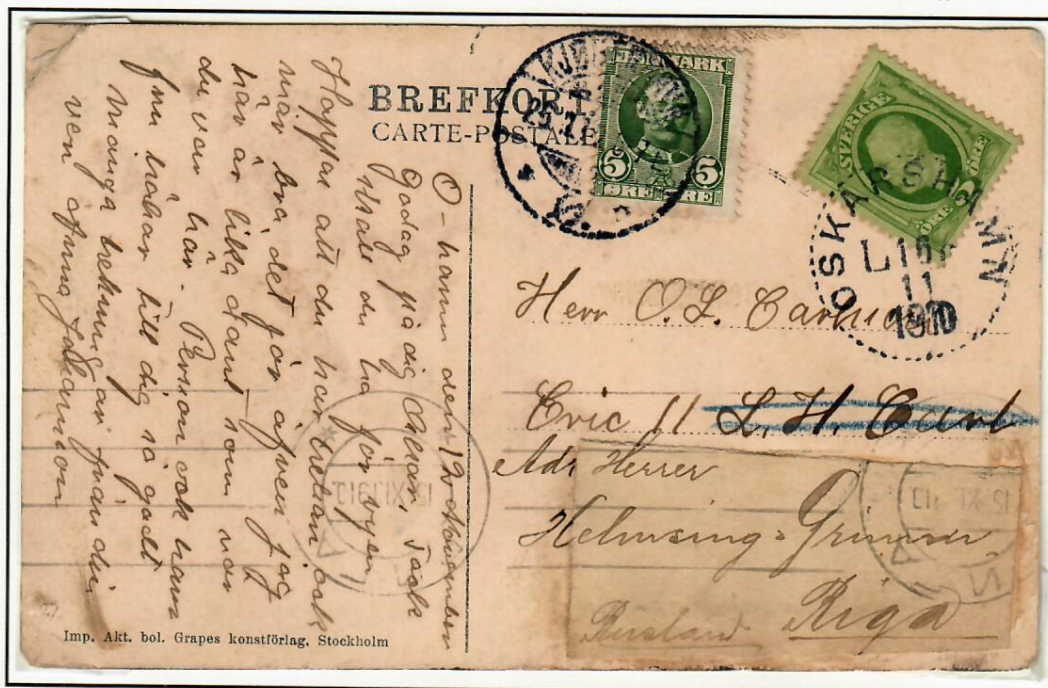 BREFKORT
CARTE-POSTALE
DANMARK
5 5
ØRE ØRE
SVERIGE
5 ÖRE
OSKARSHAMN
L 15
11
1910
O-hamn den 19 November
Godag på dig Oskar, Tack
skall du ha för vyen
Hoppas att du har hellan ock
mår bra, det gör äfven jag
här är lika dant som när
du var här. Person ock hans
fru hälsar till dig så godt
många hälsningar från din
ven Anna Johanson
Herr O. L.
Eric 11 L. H. Carl
Adr Herrer
Helmsing & Grimm
Riga
Rusland
15.XI.1910
15 XI 910
Imp. Akt. bol. Grapes konstförlag, Stockholm